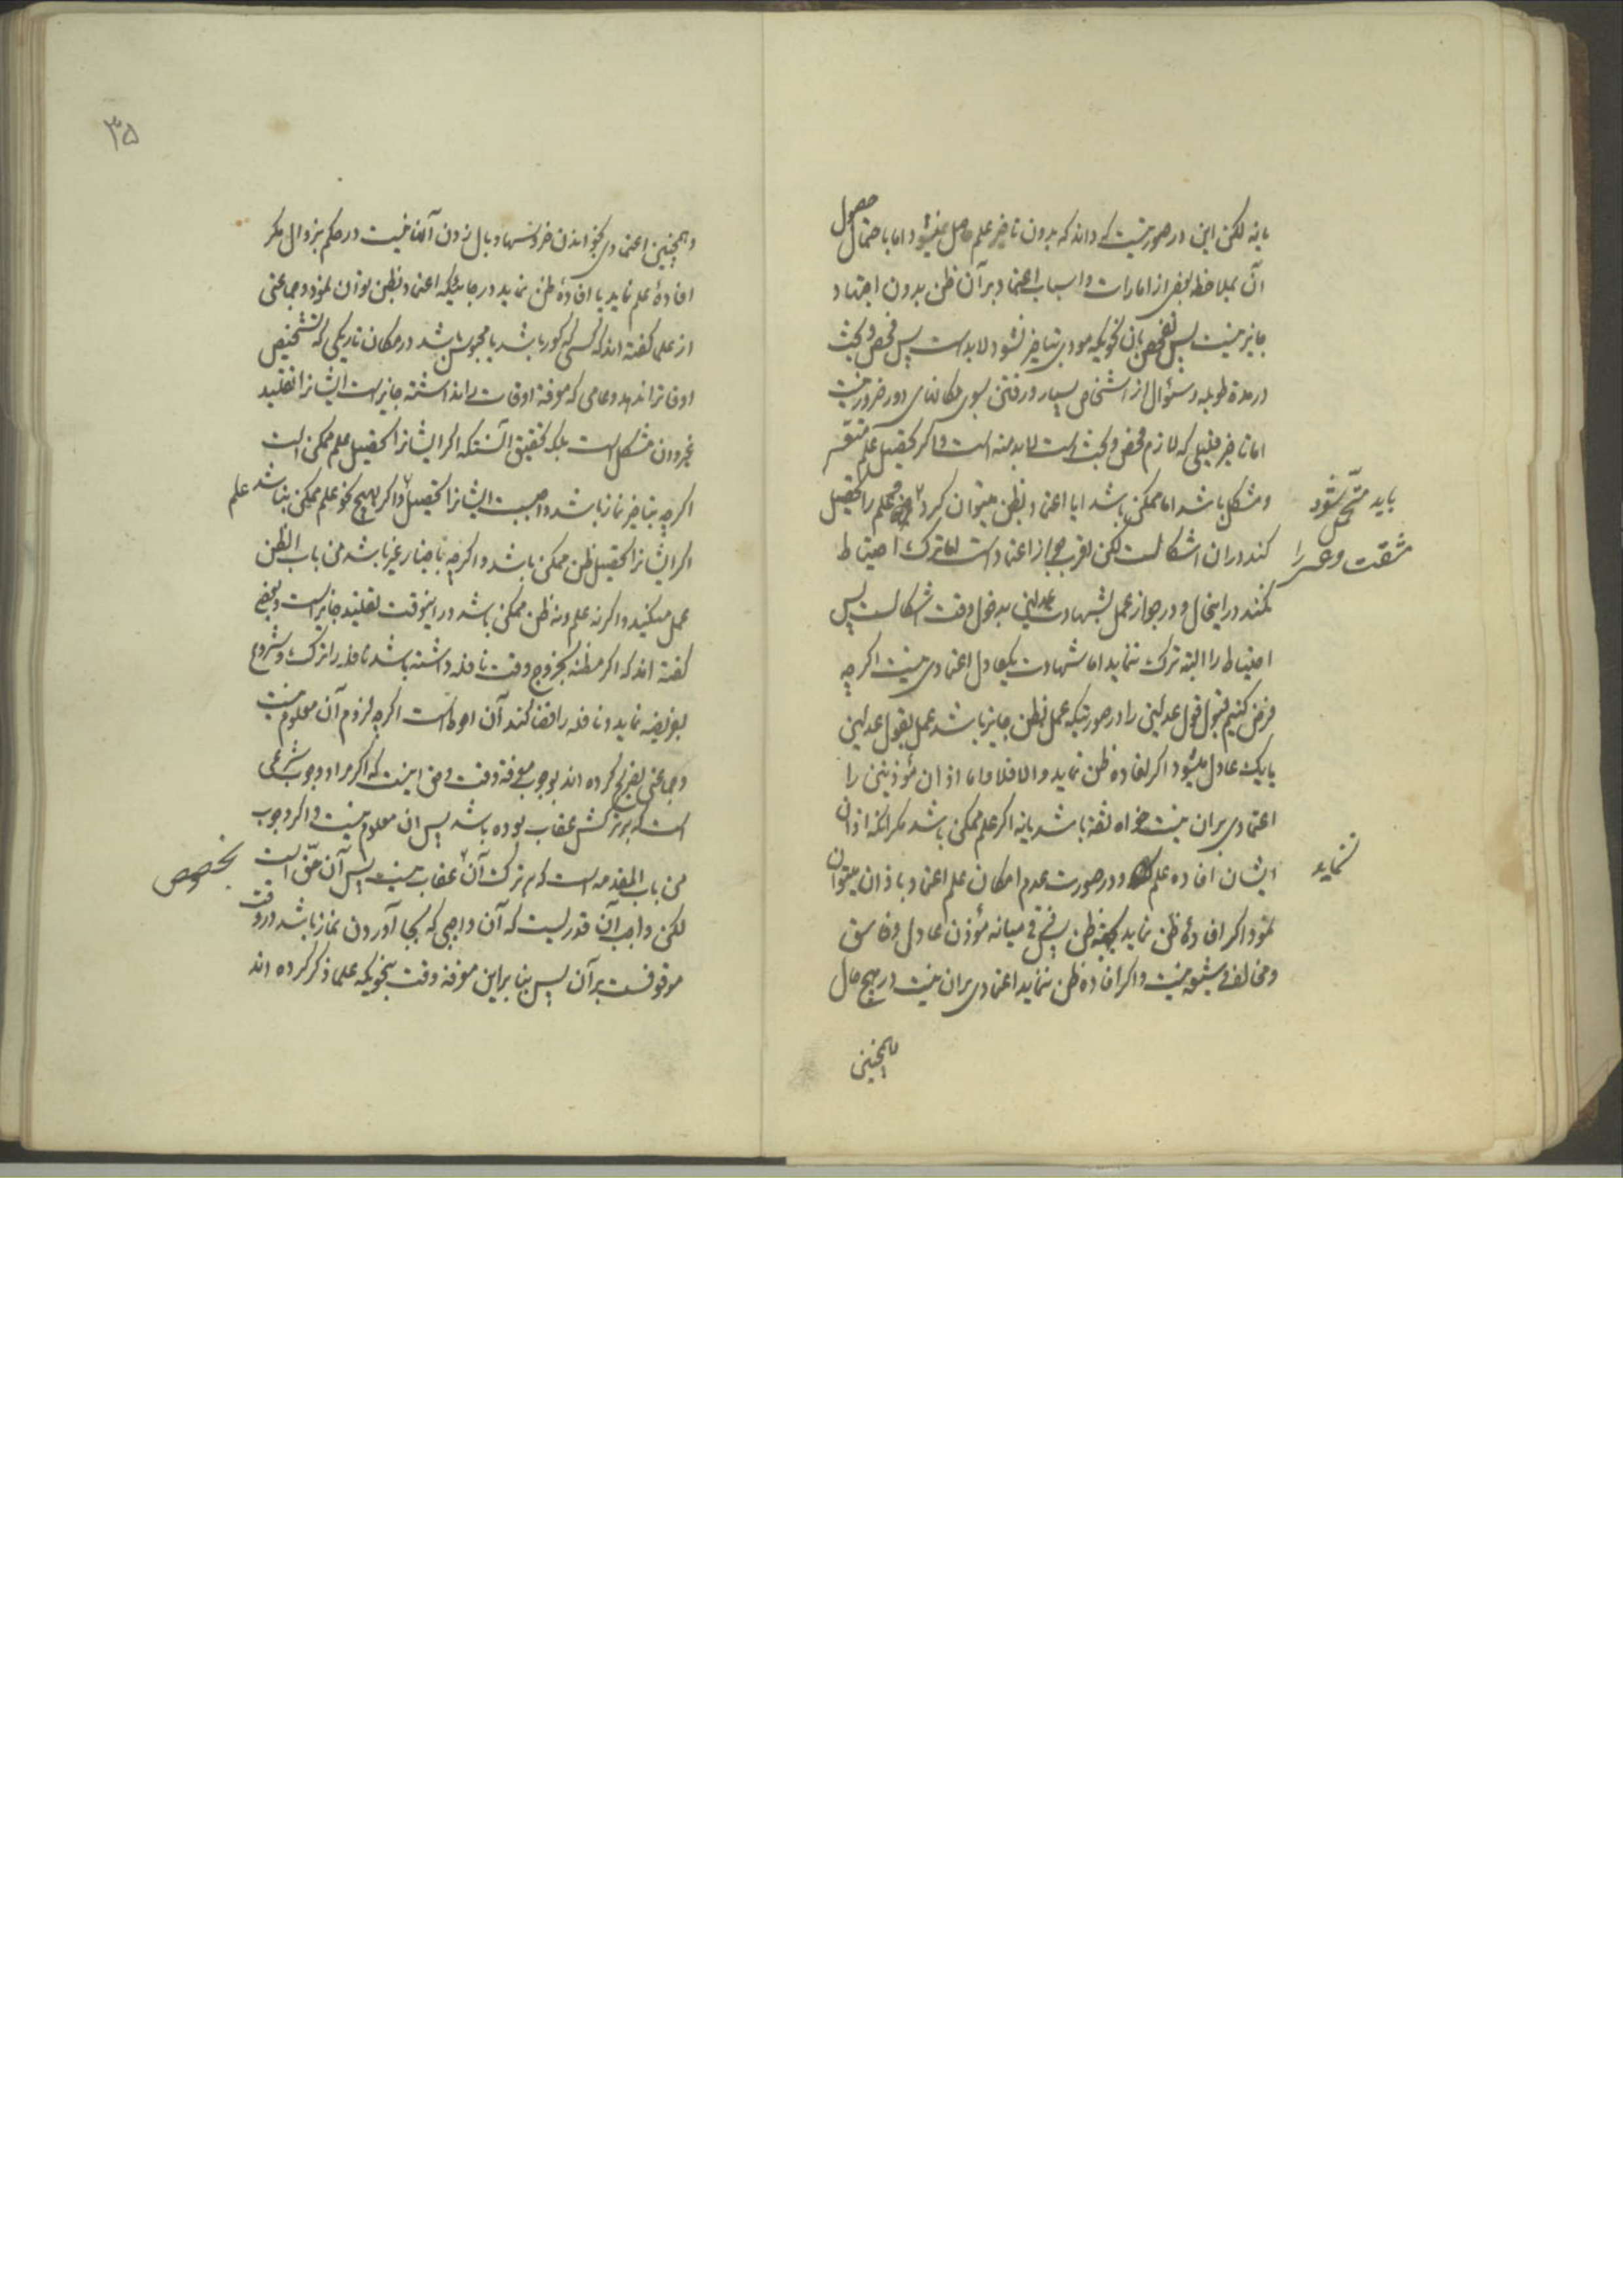 یا نه لکن این در صورتیست که داند که بدون تاخیر علم حاصل میشود اما باحتمال حصول
آن بملاحظه بعضی از امارات و اسباب اعتماد بر آن ظن بدون اجتهاد
جایز نیست پس تفحص بآن نحویکه مودی بتاخیر نشود لابد است پس فحص و بحث
در مدة طویله و سئوال از اشخاص بسیار و رفتن بسوی مکانهای دور ضرور نیست
اما تاخیر قلیلی که لازم فحص و بحث است لابد منه است و اگر تحصیل علم متعسّر
و مشکل باشد اما ممکن باشد ایا اعتماد بظن میتوان کرد یا علم را تحصیل
باید متحمّل شود
مشقت و عسر را
کند در ان اشکالست لکن اقرب جواز اعتماد است اما ترک احتیاط
نکند در اینحال و در جواز عمل بشهادت عدلین بدخول وقت اشکالست پس
احتیاط را البته ترک ننماید اما شهادت یکعادل اعتمادی نیست اگر چه
فرض کنیم قبول قول عدلین را در صورتیکه عمل بظن جایز باشد عمل بقول عدلین
یا یک عادل میشود اگر افاده ظن نماید و الا فلا و اما اذان مؤذنین را
اعتمادی بر ان نیست خواه ثقه باشد یا نه اگر علم ممکن باشد مگر آنکه اذان
ایشان افاده علم و در صورت عدم امکان علم اعتماد باذان میتوان
نماید
نمود اگر افادۀ ظن نماید ظن پس فرقی میانه مؤذن عادل و فاسق
و مخالف و شیعه نیست و اگر افاده ظن ننماید اعتمادی بر ان نیست در هیچ حال
همچنین
۳۵
و همچنین اعتمادی بخواندن خروسها و بال زدن آنها نیست در حکم بزوال مگر
افادۀ علم نماید یا افادۀ ظن نماید در جائیکه اعتماد بظن توان نمود و جماعتی
از علما گفته اند که کسی که کور باشد یا محبوس باشد در مکان تاریکی که تشخیص
اوقات را ندهد و عامی که معرفة اوقات را نداشته جایز است ایشانرا تقلید
نمودن مشکل است بلکه تحقیق آنستکه اگر ایشانرا تحصیل علم ممکن است
اگر چه بتاخیر نماز باشد واجبست ایشانرا تحصیل علم و اگر بهیچ نحو علم ممکن نباشد
اگر ایشانرا تحصیل ظن ممکن باشد و اگر چه باخبار غیر باشد من باب الظن
عمل میکنید و اگر نه علم و نه ظن ممکن باشد در اینوقت تقلید جایز است و بعضی
گفته اند که اگر مظنه بخروج وقت نافله داشته باشد نافله را ترک و شروع
بفریضه نماید و نافله را قضا کند آن احوط است اگر چه لزوم آن معلوم نیست
و جماعتی تصریح کرده اند بوجوب معرفة وقت و حق اینست که اگر مراد وجوب شرعی
است که بر ترکش عقاب بوده باشد پس ان معلوم نیست و اگر وجوب
من باب المقدمه است که بر ترک آن بخصوص عقاب نیست پس آن حقّ است
لکن واجب آن قدریست که آن واجبی که بجا آوردن نماز باشد در وقت
موقوفست بر آن پس بنا بر این معرفة وقت بنحویکه علما ذکر کرده اند